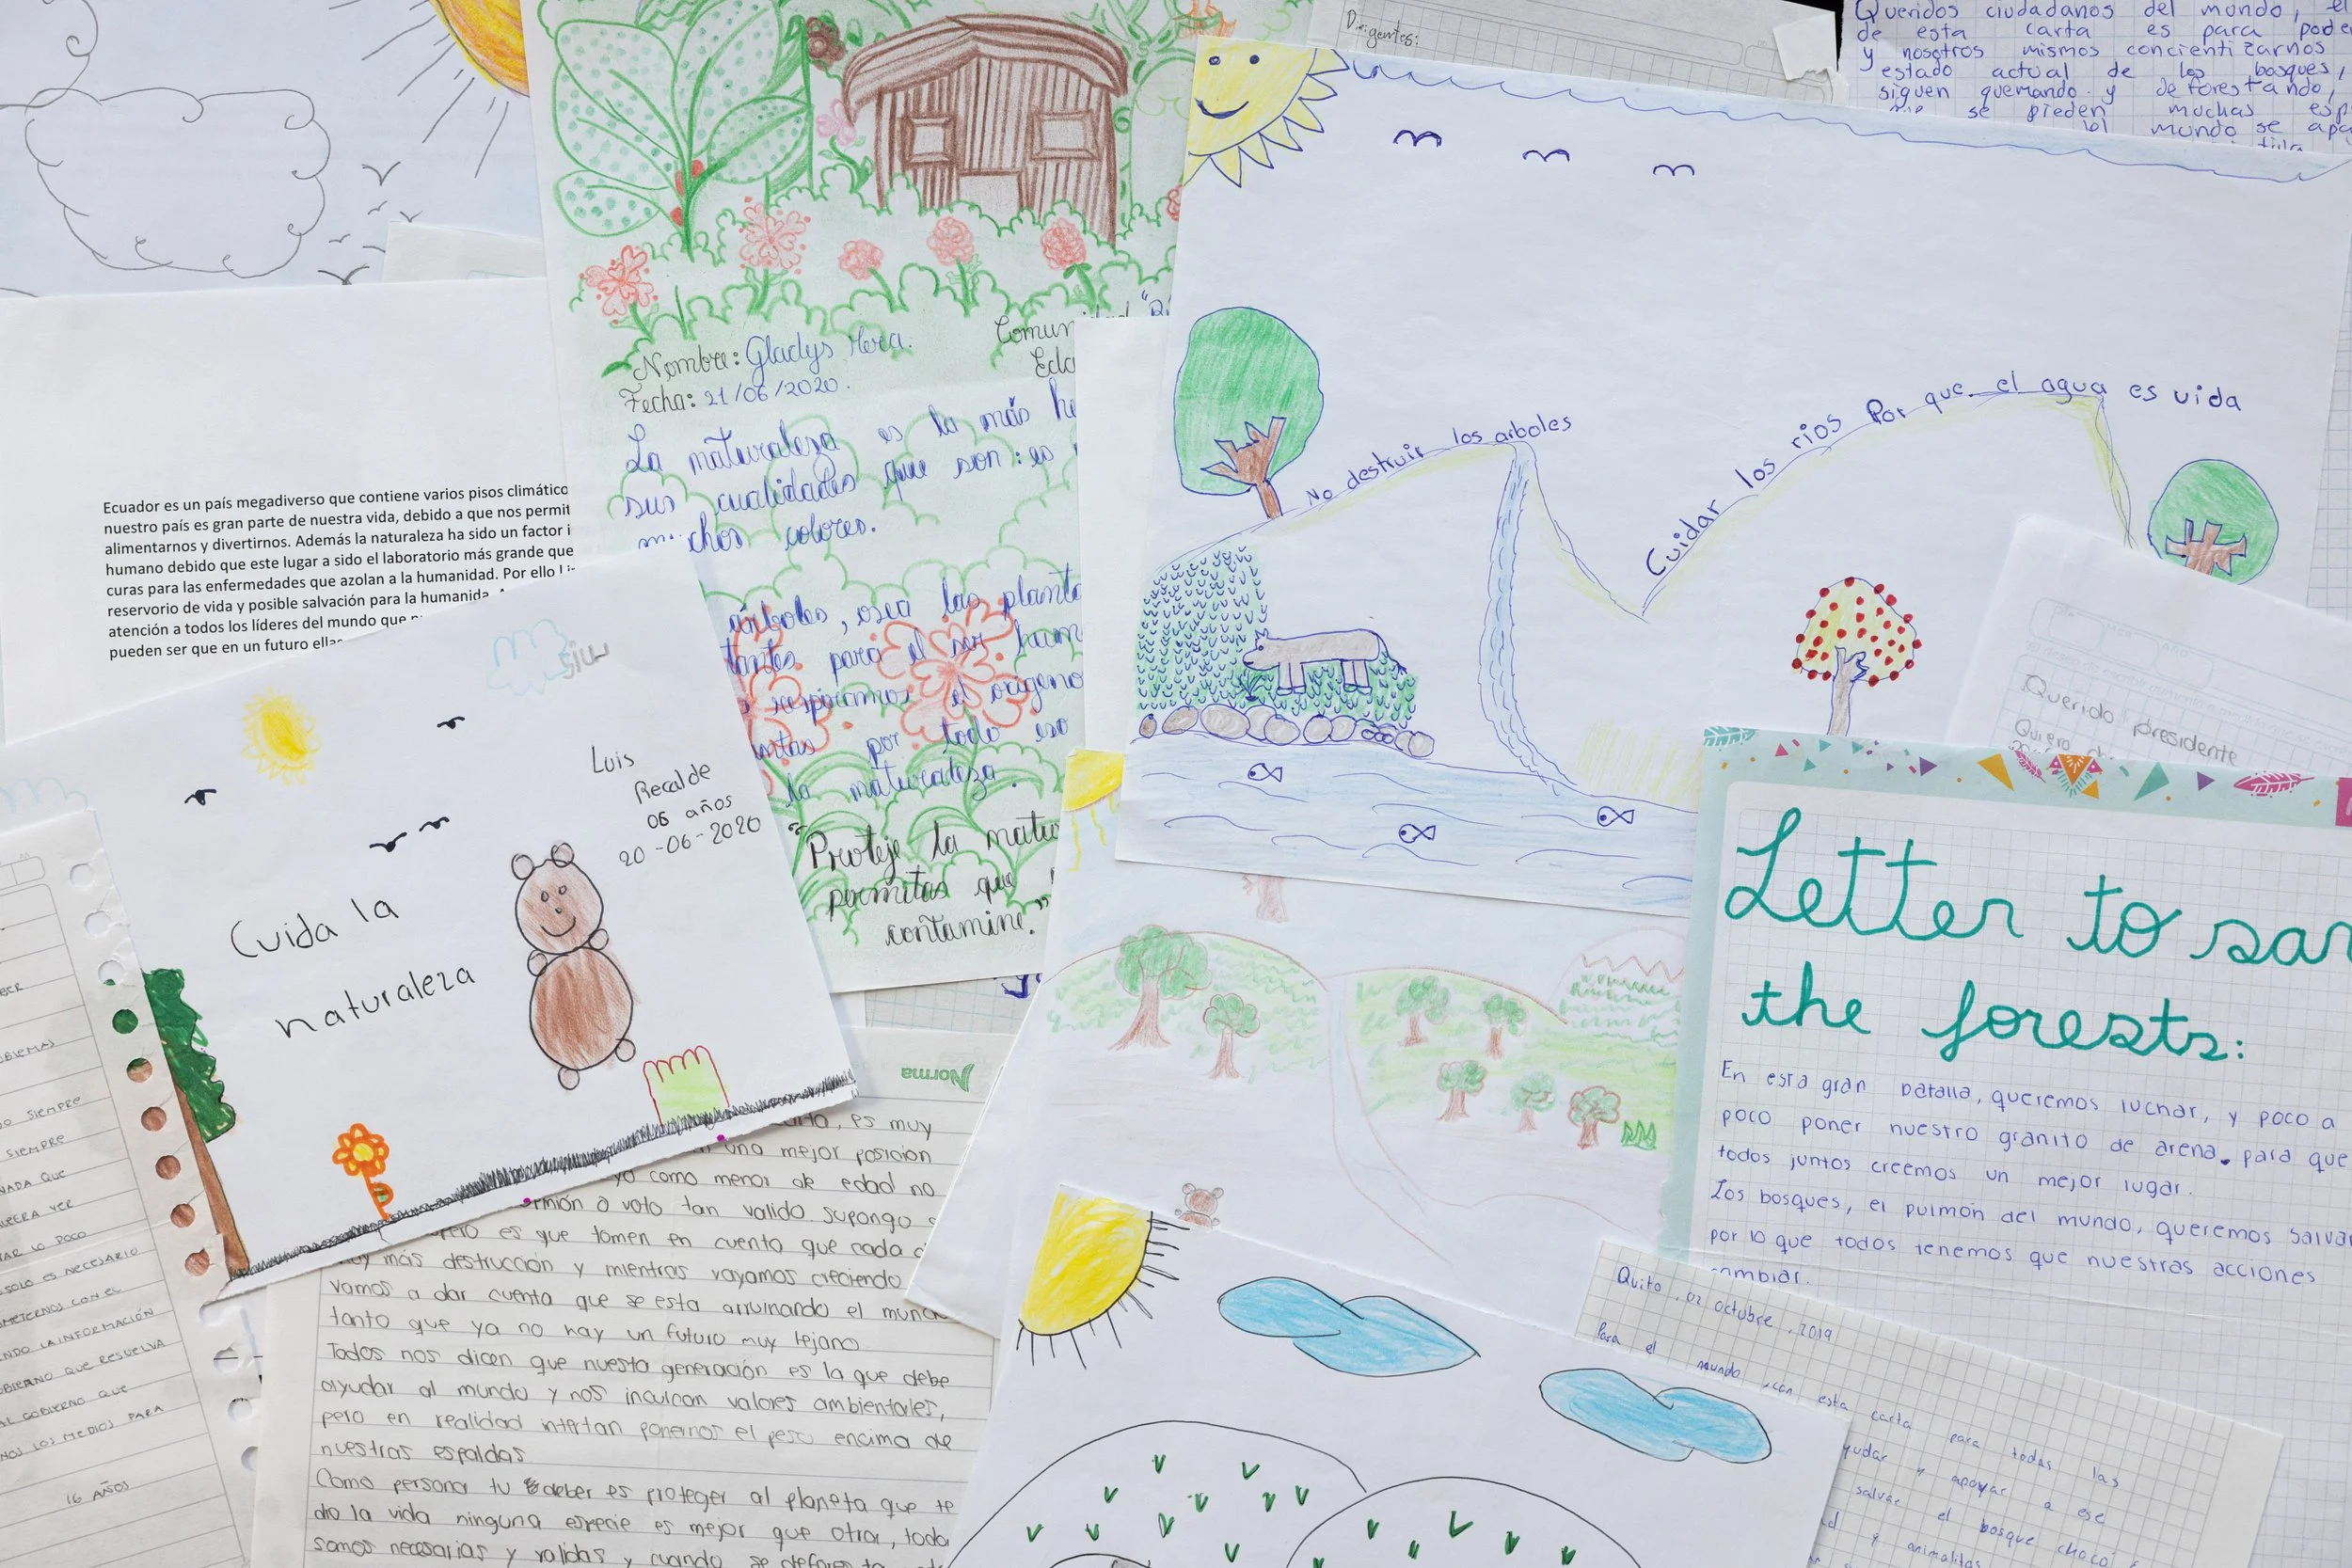 Dirigentes:
Queridos ciudadanos del mundo, el
de esta carta es para pode
y nosotros mismos concientizarnos
estado actual de los bosques,
siguen quemando y deforestando,
se pieden muchas esp
mundo se apa
Nombre: Gladys Mera.
Fecha: 21/06/2020.
Comun
Eda
La naturaleza es la más he
sus cualidades que son: es
muchos colores.
árboles, osea las planta
tantes para el ser hum
respiramos el oxigeno
por todo eso
la naturaleza.
"Proteje la natu
permitas que
contamine."
No destruir los arboles
Cuidar los rios Por que el agua es vida
Ecuador es un país megadiverso que contiene varios pisos climático
nuestro país es gran parte de nuestra vida, debido a que nos permit
alimentarnos y divertirnos. Además la naturaleza ha sido un factor i
humano debido que este lugar a sido el laboratorio más grande que
curas para las enfermedades que azolan a la humanidad. Por ello l
reservorio de vida y posible salvación para la humanida
atención a todos los líderes del mundo que
pueden ser que en un futuro ella
Luis
Recalde
06 años
20-06-2020
Cuida la
naturaleza
Querido presidente
Quiero
Letter to sa
the forests:
En esta gran batalla, queremos luchar, y poco a
poco poner nuestro granito de arena. para que
todos juntos creemos un mejor lugar.
Los bosques, el pulmón del mundo, queremos salva
por lo que todos tenemos que nuestras acciones
cambiar.
Quito, 02 octubre, 2019
Para el mundo, con esta carta para todas las
yudar y apoyar a ese
salvar el bosque chocó
y animalitos
Norma
es muy
una mejor posicion
yo como menor de edad no
opinión o voto tan valido. supongo
pero es que tomen en cuenta que cada
más destrucción y mientras vayamos creciendo
vamos a dar cuenta que se esta arruinando el mund
tanto que ya no hay un futuro muy lejano
Todos nos dicen que nuesta generación es la que debe
ayudar al mundo y nos inculcan valores ambientales,
pero en realidad intentan ponernos el peso encima de
nuestras espaldas.
Como persona tu deber es proteger al planeta que te
dio la vida ninguna especie es mejor que otra, todo
somos necesarias y validas y cuando se defores
OBLEMAS
SIEMPRE
SIEMPRE
NADA QUE
VER
LO POCO
SOLO ES NECESARIO
METERNOS CON EL
NDO LA INFORMACIÓN
OBIERNO QUE RESUELVA
AL GOBIERNO QUE
NOS LOS MEDIOS PARA
16 AÑOS